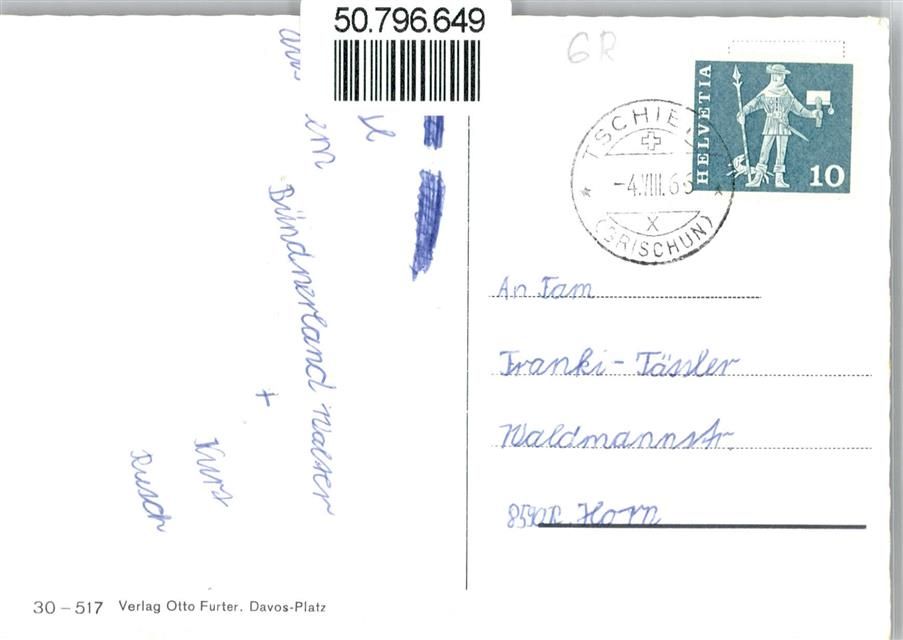 50.796.649
GR
HELVETIA
10
TSCHIE
-4.VIII.6
X
(GRISCHUN)
em
Bündnerland Walter
+
Kurt
Rusch
An Fam
Franki - Fässler
Waldmannstr.
Horn
30 – 517 Verlag Otto Furter, Davos-Platz